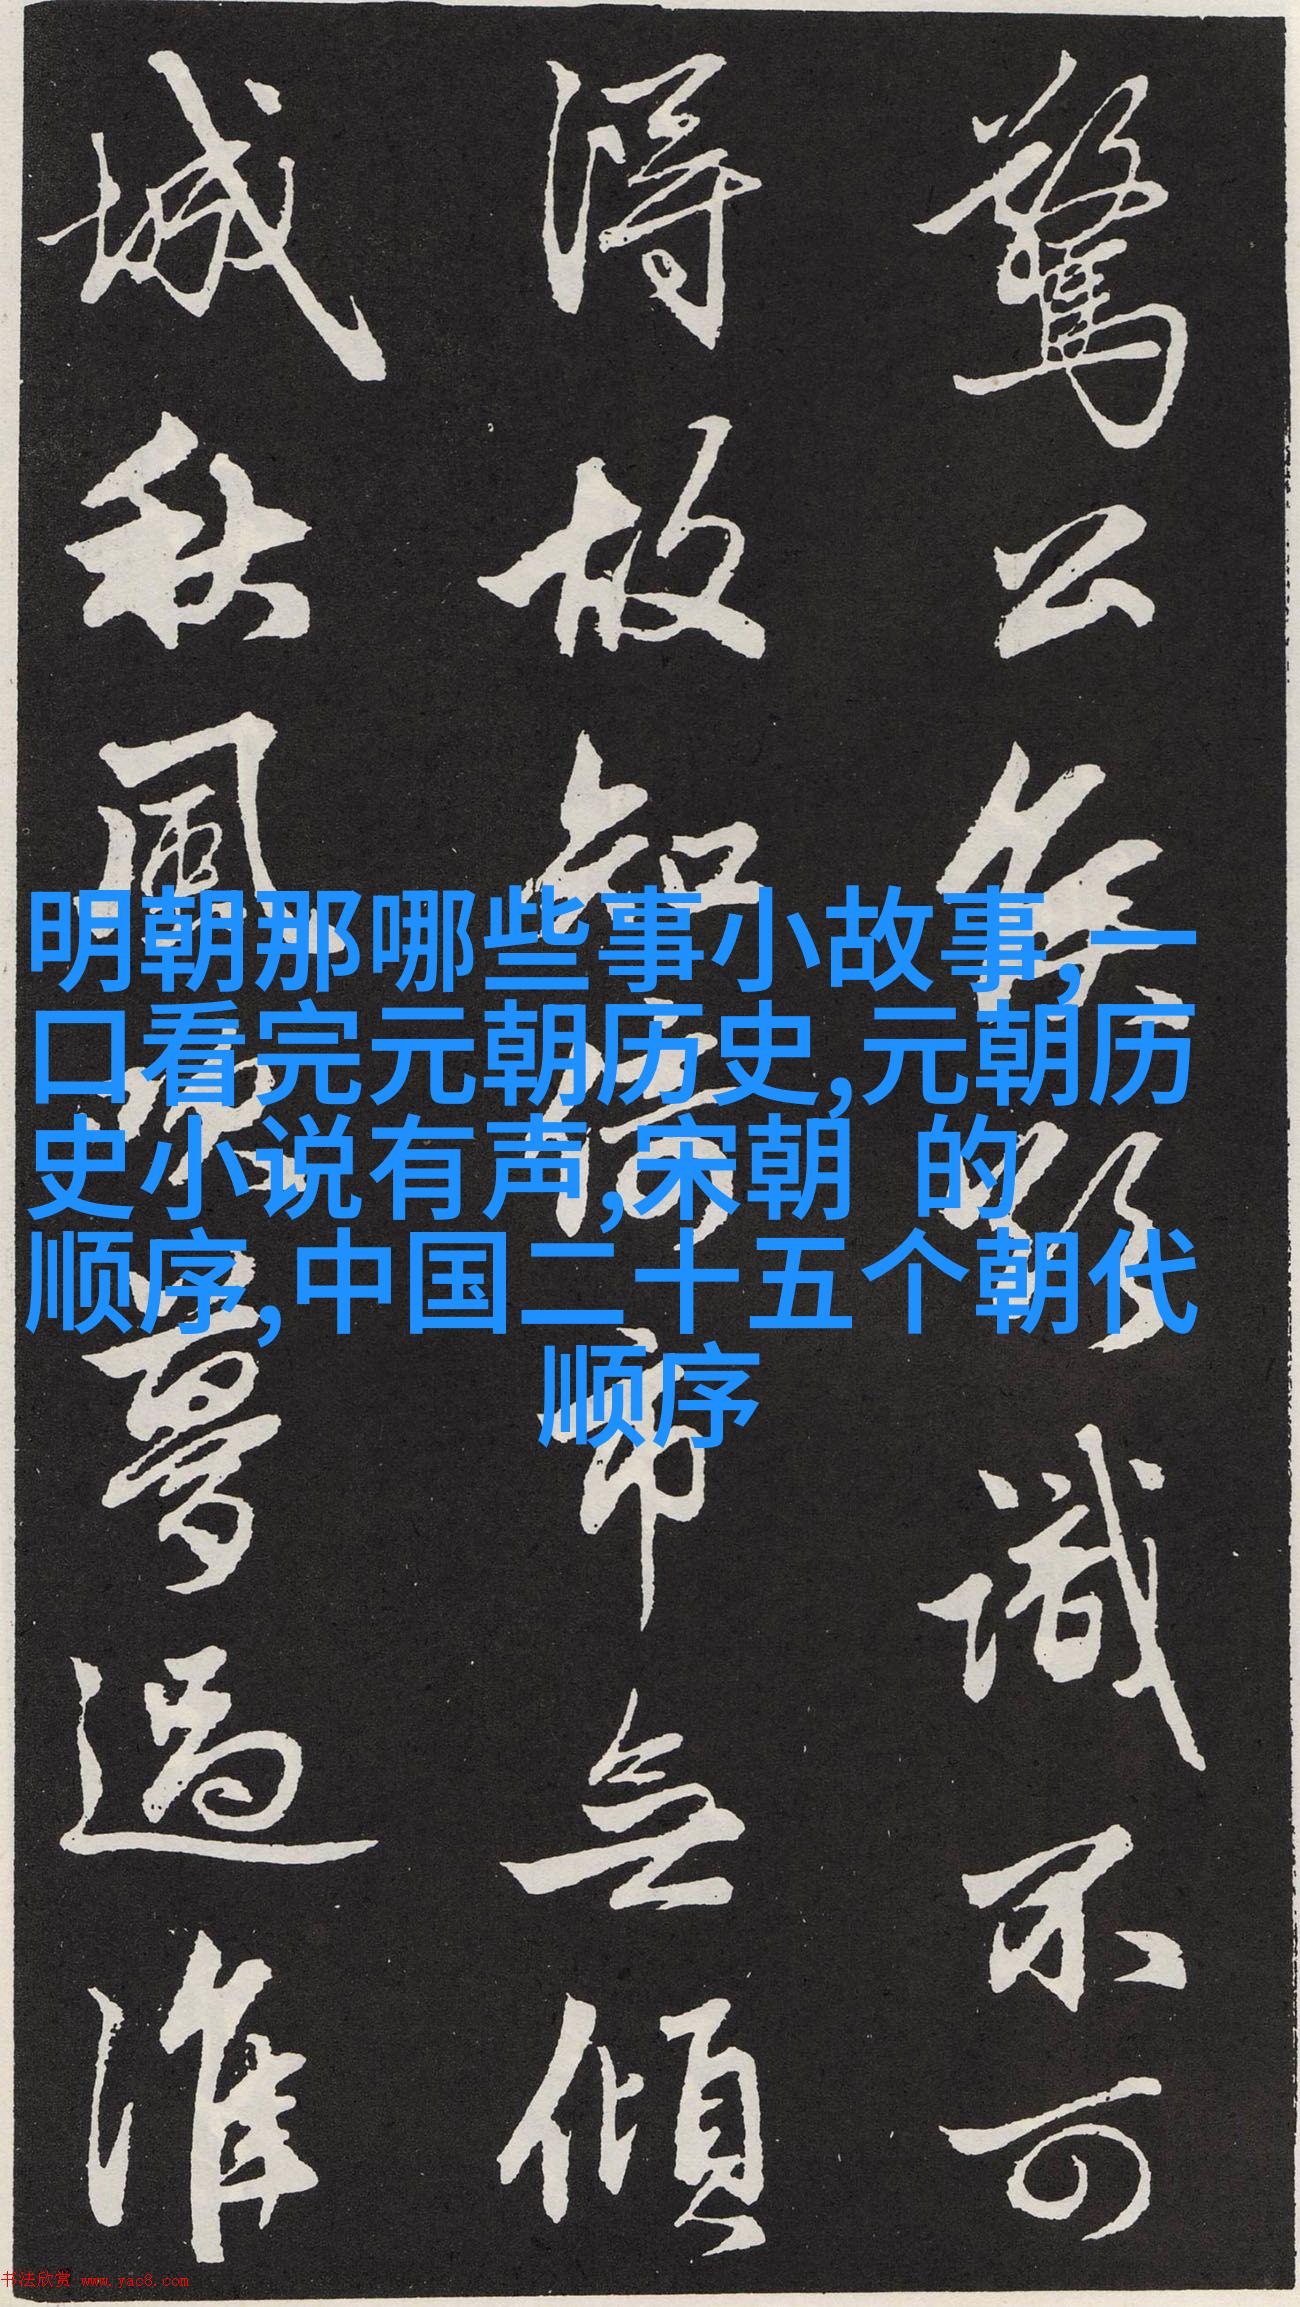 驚公識不可
得故知倚市無傾
城秋風夢過淮
明朝那哪些事小故事,一
口看完元朝历史,元朝历
史小说有声,宋朝 的
顺序,中国二十五个朝代
顺序
书法欣赏 www.yac8.com